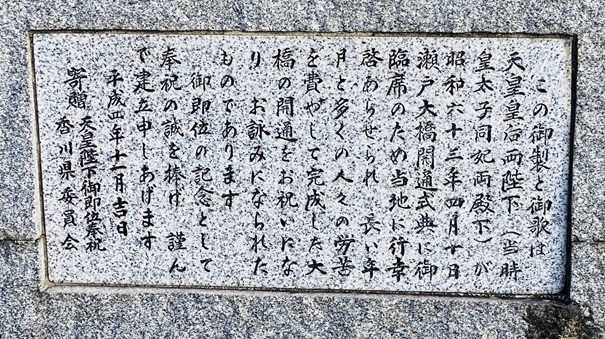 この御製と御歌は
天皇皇后両陛下（当時
皇太子同妃両殿下）が
昭和六十三年四月十日
瀬戸大橋開通式典に御
臨席のため当地に行幸
啓あらせられ 長い年
月と多くの人々の労苦
を費やして完成した大
橋の開通をお祝いにな
り お詠みになられた
ものであります
御即位の記念として
奉祝の誠を捧げ 謹ん
で建立申しあげます
平成四年十一月吉日
寄贈 天皇陛下御即位奉祝
香川県委員会